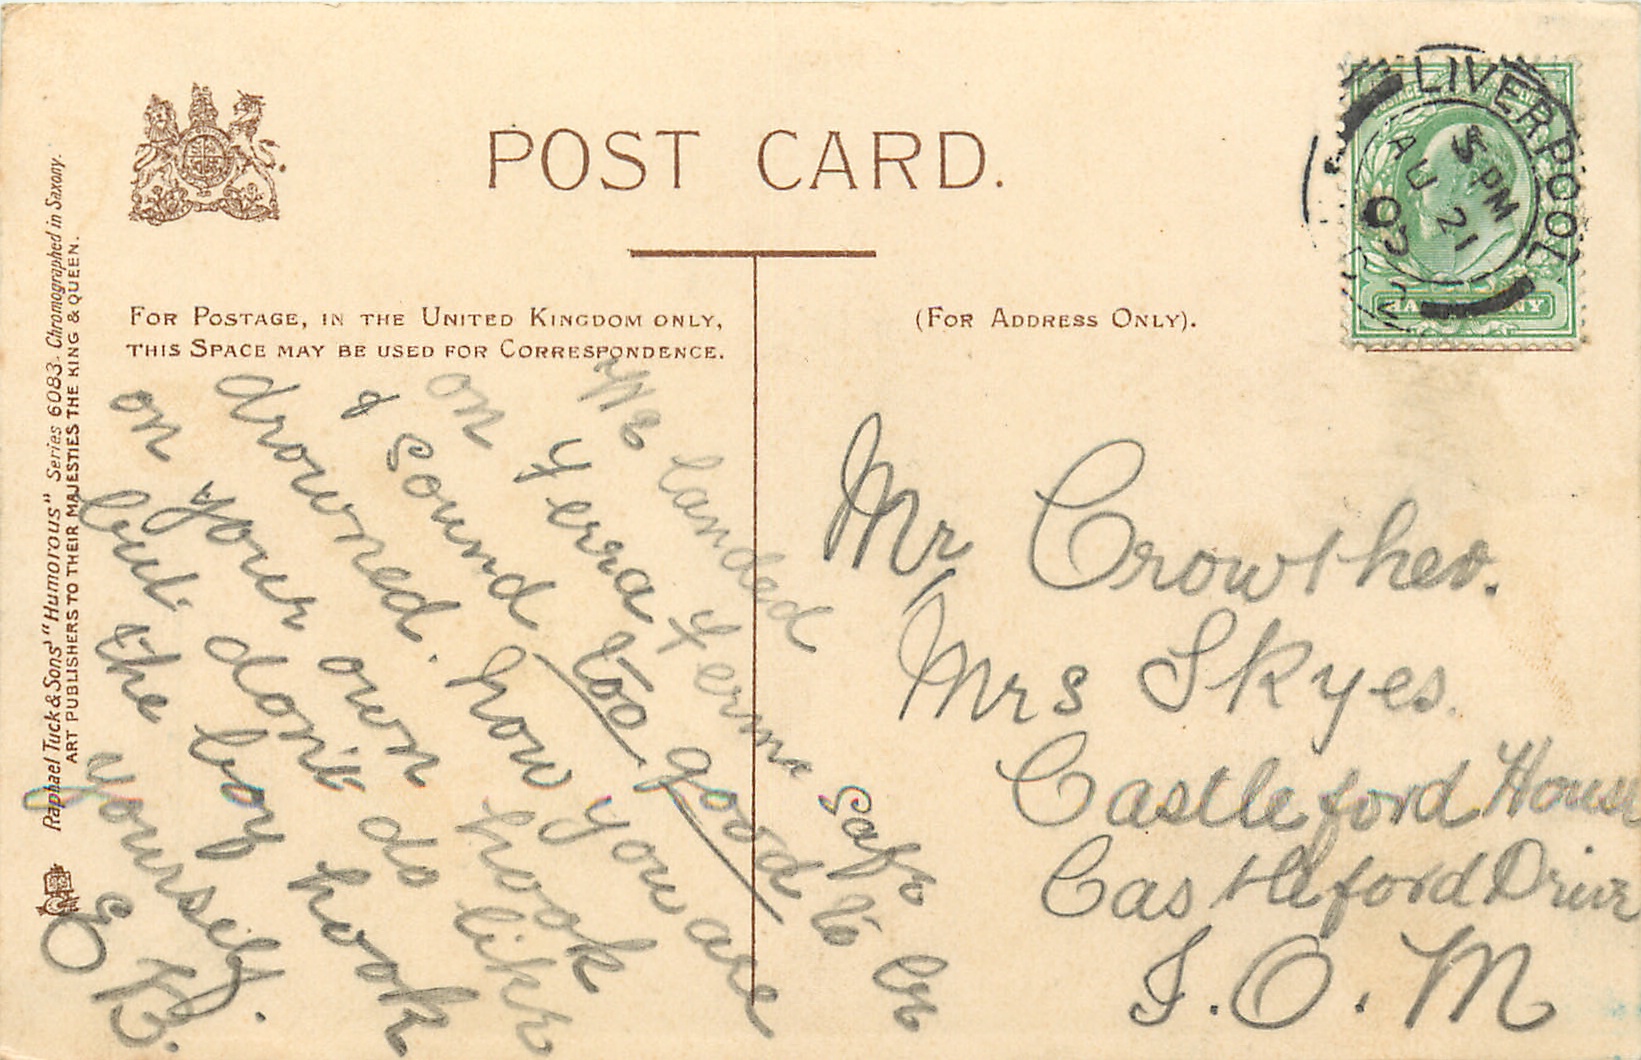 POST CARD.
LIVERPOOL
5 PM
AU 21
07
FOR POSTAGE, IN THE UNITED KINGDOM ONLY,
THIS SPACE MAY BE USED FOR CORRESPONDENCE.
(FOR ADDRESS ONLY).
Raphael Tuck & Sons' "Humorous" Series 6083. Chromographed in Saxony.
ART PUBLISHERS TO THEIR MAJESTIES THE KING & QUEEN.
We landed
on Yerra Yerma safe
& sound too good to be
drowned. how you are
on your own hook
but don't do like
the boy hook
yourself.
E B.
Mr Crowther.
Mrs Skyes.
Castleford House
Castleford Drive
I.O.M